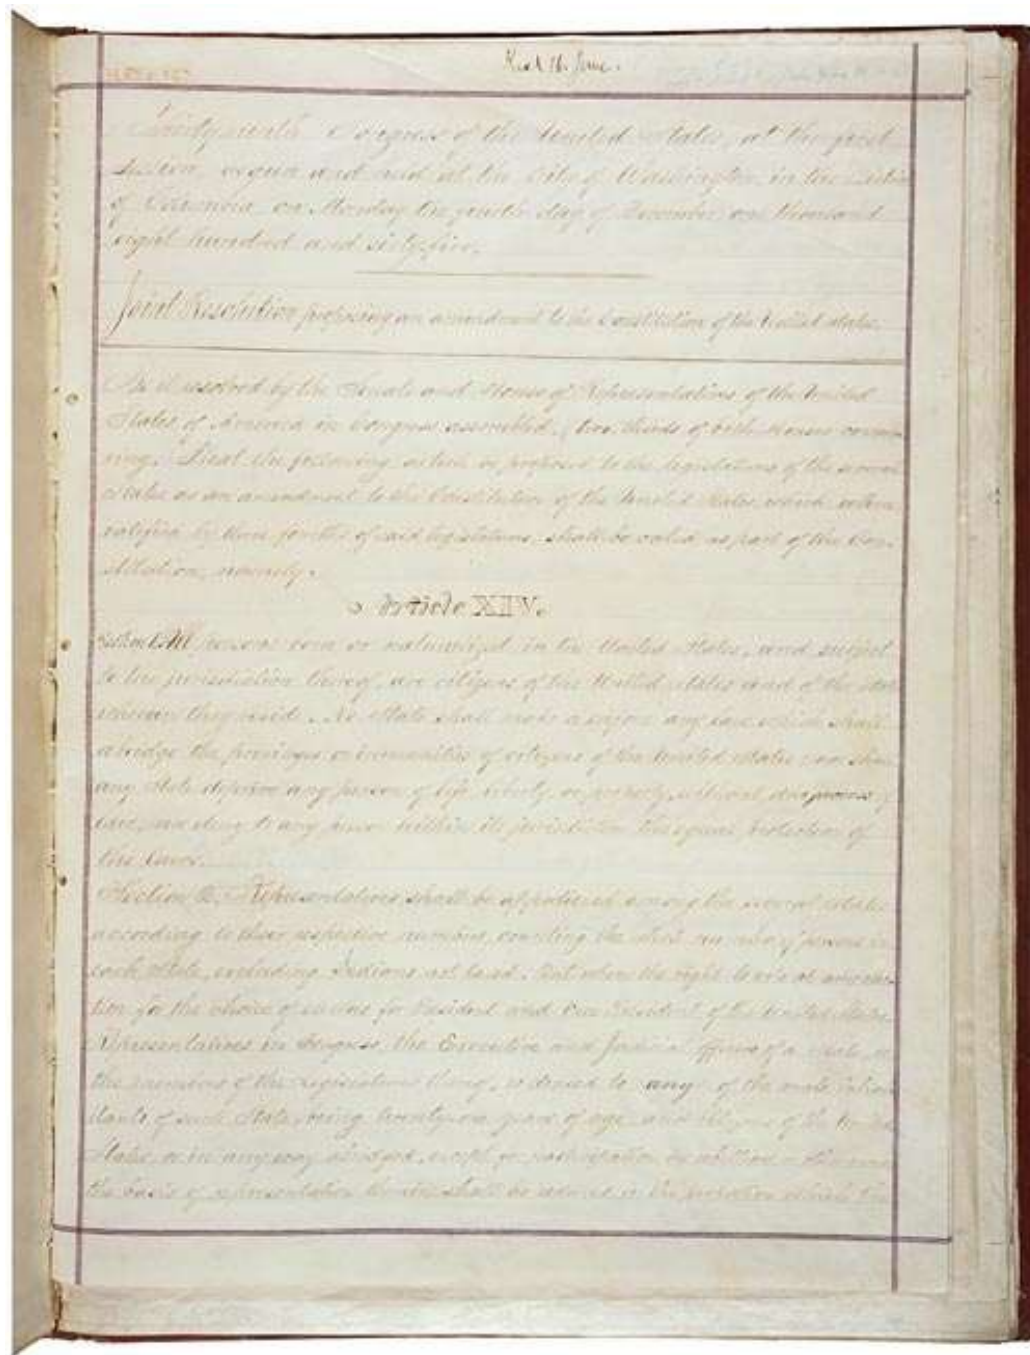 Thirty-ninth Congress of the United States, at the first
Session, begun and held at the City of Washington, in the District
of Columbia, on Monday the fourth day of December, one thousand
eight hundred and sixty-five.
Joint Resolution proposing an amendment to the Constitution of the United States.
Be it resolved by the Senate and House of Representatives of the United
States of America in Congress assembled, (two-thirds of both Houses concur-
ring,) That the following article be proposed to the legislatures of the several
States as an amendment to the Constitution of the United States, which, when
ratified by three-fourths of said legislatures, shall be valid as part of the Con-
stitution, namely:
Article XIV.
Section 1. All persons born or naturalized in the United States, and subject
to the jurisdiction thereof, are citizens of the United States and of the State
wherein they reside. No State shall make or enforce any law which shall
abridge the privileges or immunities of citizens of the United States; nor shall
any State deprive any person of life, liberty, or property, without due process of
law; nor deny to any person within its jurisdiction the equal protection of
the laws.
Section 2. Representatives shall be apportioned among the several States
according to their respective numbers, counting the whole number of persons in
each State, excluding Indians not taxed. But when the right to vote at any elec-
tion for the choice of electors for President and Vice President of the United States,
Representatives in Congress, the Executive and Judicial officers of a State, or
the members of the Legislature thereof, is denied to any of the male inhabi-
tants of such State, being twenty-one years of age, and citizens of the United
States, or in any way abridged, except for participation in rebellion or other crime,
the basis of representation therein shall be reduced in the proportion which the